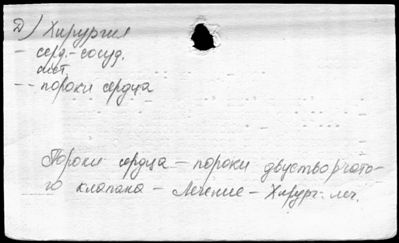 Д) Хирургия
- серд.-сосуд.
сист.
-- пороки сердца
Пороки сердца - пороки двустворчато-
го клапана - Лечение - Хирург. леч.